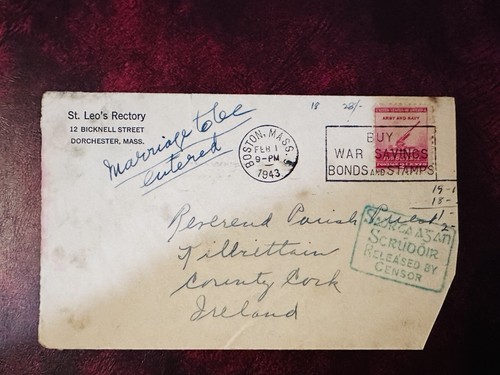 St. Leo's Rectory
12 BICKNELL STREET
DORCHESTER, MASS.
Marriage to be
entered
18 23/-
BOSTON, MASS.
FEB 1
9-PM
1943
ARMY AND NAVY
BUY
WAR SAVINGS
BONDS AND STAMPS
19-1
18-
Reverend Parish Priest
Kilbrittain
County Cork
Ireland
SCRÚDÓIR
RELEASED BY
CENSOR